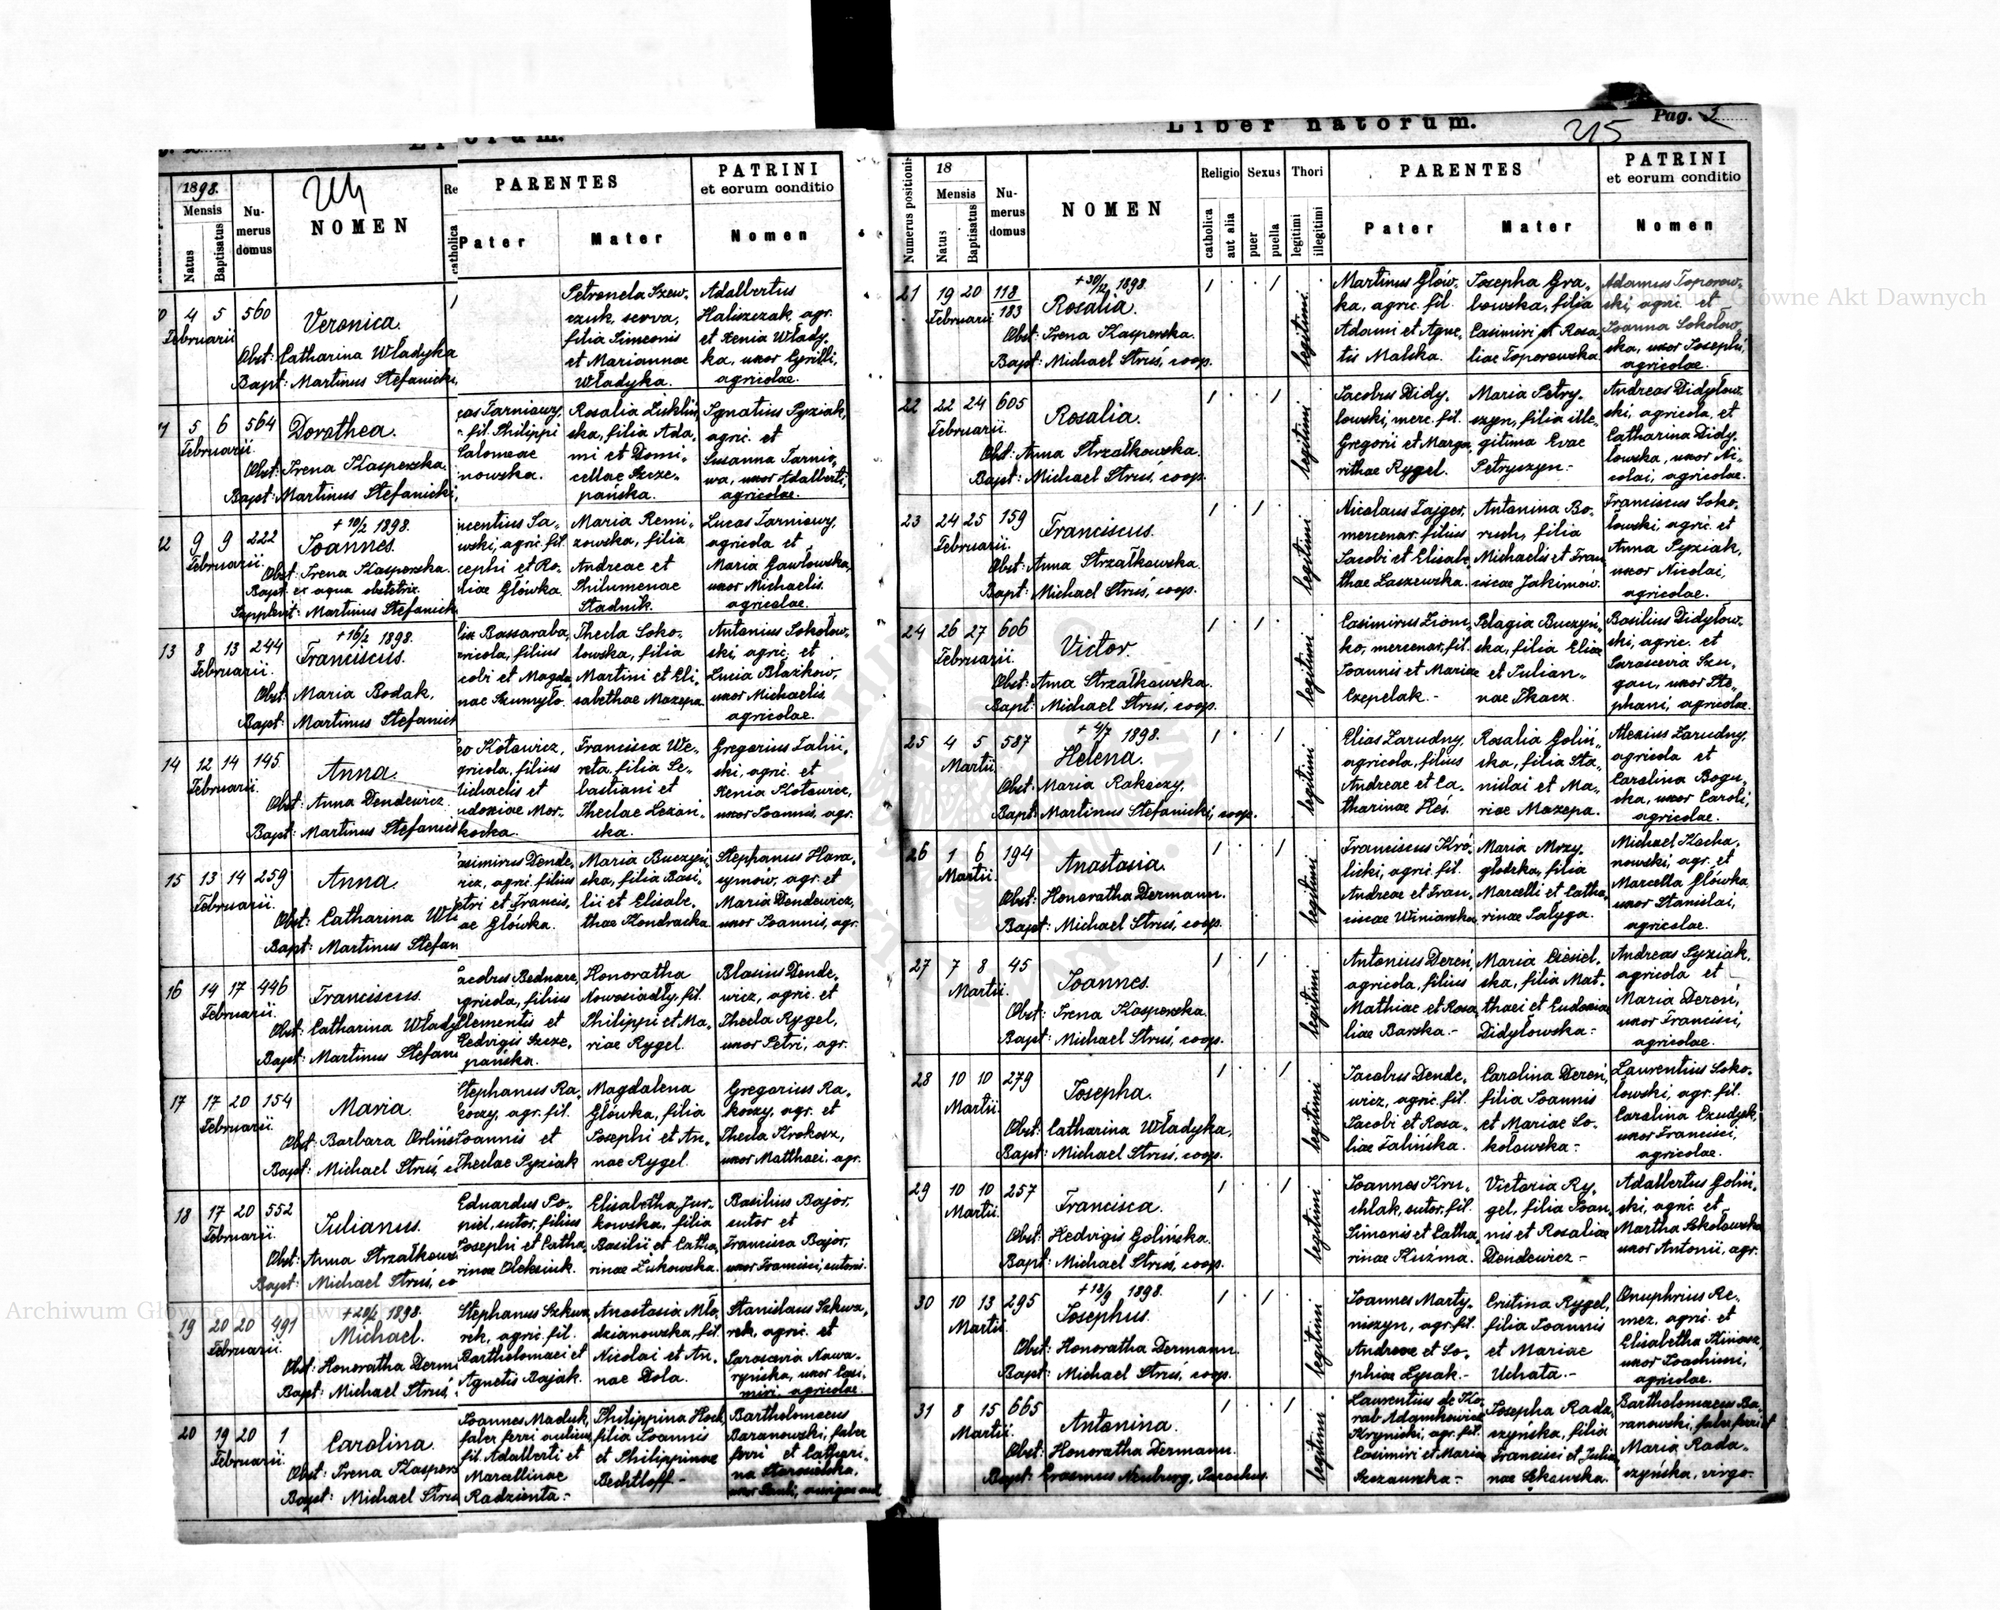 Liber natorum.
Pag. 2
215
214
1898.
Mensis
Natus
Baptisatus
Numerus domus
NOMEN
catholica
PARENTES
Pater
Mater
PATRINI
et eorum conditio
Nomen
4 5 560
Februarii
Veronica.
Obst: Catharina Władyka
Bapt: Martinus Stefanicki,
Petronela Szew-
czuk, serva,
filia Simeonis
et Mariannae
Władyka.
Adalbertus
Haliszczak, agr.
et Xenia Włady-
ka, uxor Cyrilli,
agricolae.
5 6 564
Februarii.
Dorothea.
Obst: Irena Kasperska.
Bapt: Martinus Stefanicki,
cas Tarniowy,
fil. Philippi
Salomeae
nowska.
Rosalia Luklin
ska, filia Ada-
mi et Domi-
cellae Szcze-
pańska.
Ignatius Pyziak,
agric. et
Susanna Tarnio-
wa, uxor Adalberti,
agricolae.
12 9 9 222
Februarii.
+ 10/2 1898.
Joannes.
Obst: Irena Kasperska.
Bapt: ex aqua obstetric.
Supplevit: Martinus Stefanick
ncentius Sa-
wski, agric. fil.
sephi et Ro-
liae Główka.
Maria Remi-
zowska, filia
Andreae et
Philumenae
Stadnik.
Lucas Tarniowy,
agricola et
Maria Gawłowska,
uxor Michaelis
agricolae.
13 8 13 244
Februarii.
+ 16/2 1898.
Franciscus.
Obst: Maria Bodak.
Bapt: Martinus Stefanick
lix Bassaraba,
gricola, filius
cobi et Magda
nae Szumyło.
Thecla Soko-
lowska, filia
Martini et Eli-
sabethae Mazepa.
Antonius Sokołow-
ski, agric. et
Lucia Blazkow,
uxor Michaelis
agricolae.
14 12 14 145
Februarii.
Anna.
Obst: Anna Dendewicz
Bapt: Martinus Stefanic
eo Kotowicz,
gricola, filius
ichaelis et
udoxiae Mor-
kocka.
Francisca We-
reta, filia Se-
bastiani et
Theclae Lexan-
ska.
Gregorius Taliń-
ski, agric. et
Xenia Kotowicz,
uxor Joannis, agr.
15 13 14 259
Februarii.
Anna.
Obst: Catharina Wła
Bapt: Martinus Stefan
asimirus Dende-
wicz, agric. filius
etri et Francis-
ae Główka.
Maria Buczyń-
ska, filia Basi-
lii et Elisabe-
thae Kondracka.
Stephanus Hara-
symów, agr. et
Maria Dendewicz,
uxor Joannis, agr.
16 14 17 446
Februarii.
Franciscus.
Obst: Catharina Włady
Bapt: Martinus Stefan
Jacobus Bednarz,
agricola, filius
Clementis et
Hedvigis Szcze-
pańska.
Honoratha
Nowosiadły, fil.
Philippi et Ma-
riae Rygel.
Blasius Dende-
wicz, agric. et
Thecla Rygel,
uxor Petri, agr.
17 17 20 154
Februarii.
Maria.
Obst: Barbara Orlińs
Bapt: Michael Struś, c
Stephanus Ra-
koczy, agr. fil.
Joannis et
Theclae Pyziak
Magdalena
Główka, filia
Josephi et An-
nae Rygel.
Gregorius Ra-
koczy, agr. et
Thecla Krokosz,
uxor Matthaei, agr.
18 17 20 552
Februarii.
Julianus.
Obst: Anna Strzałkows
Bapt: Michael Struś, co
Eduardus Po-
piel, sutor, filius
Josephi et Catha-
rinae Oleksiuk.
Elisabetha Jur-
kowska, filia
Basilii et Catha-
rinae Zukowska.
Basilius Bajor,
sutor et
Francisca Bajor,
uxor Francisci, sutoris.
19 20 20 491
Februarii.
+ 20/2 1898.
Michael.
Obst: Honoratha Derm
Bapt: Michael Struś
Stephanus Szkwa-
rek, agric. fil.
Bartholomaei et
Agnetis Bajak.
Anastasia Mło-
dzianowska, fil.
Nicolai et An-
nae Dola.
Stanislaus Szkwa-
rek, agric. et
Parascevia Nawa-
ryńska, uxor Casi-
miri, agricolae
20 19 20 1
Februarii
Carolina.
Obst: Irena Kaspers
Bapt: Michael Strus
Joannes Maduk,
faber ferri aulicus,
fil. Adalberti et
Marcellinae
Radzienta.-
Philippina Hoch,
filia Joannis
et Philippinae
Bechtloff-
Bartholomaeus
Baranowski, faber
ferri et Cathari-
na Starosolska,
Pag. 3
Liber natorum.
Numerus positionis
18
Mensis
Natus
Baptisatus
Numerus domus
NOMEN
Religio
catholica
aut alia
Sexus
puer
puella
Thori
legitimi
illegitimi
PARENTES
Pater
Mater
PATRINI
et eorum conditio
Nomen
21 19 20 118
Februarii 183
+ 30/12 1898.
Rosalia.
Obst: Irena Kasperska.
Bapt: Michael Struś, coop.
legitimi
Martinus Głów-
ka, agric. fil.
Adami et Agne-
tis Malska.
Josepha Gra-
bowska, filia
Casimiri et Rosa-
liae Toporowska.
Adamus Toporow-
ski, agric. et
Joanna Sokołow-
ska, uxor Josephi,
agricolae.
22 22 24 605
Februarii.
Rosalia.
Obst: Anna Strzałkowska.
Bapt: Michael Struś, coop.
legitimi
Jacobus Didy-
lowski, merc. fil.
Gregorii et Marga-
rithae Rygel.
Maria Petry-
szyn, filia ille-
gitima Evae
Petryszyn.-
Andreas Didyłow-
ski, agricola, et
Catharina Didy-
lowska, uxor Ni-
colai, agricolae.
23 24 25 159
Februarii.
Franciscus.
Obst: Anna Strzałkowska.
Bapt: Michael Struś, coop.
legitimi
Nicolaus Zajger,
mercenar. filius
Jacobi et Elisabe
thae Laszewska.
Antonina Bo-
ruch, filia
Michaelis et Fran
ciscae Jakimów.
Franciscus Soko-
łowski, agric. et
Anna Pyziak,
uxor Nicolai,
agricolae.
24 26 27 606
Februarii.
Victor.
Obst: Anna Strzałkowska.
Bapt: Michael Struś, coop.
legitimi
Casimirus Ziom-
ko, mercenar. fil.
Joannis et Mariae
Czepelak.-
Pelagia Buczyń-
ska, filia Eliae
et Julian-
nae Tkacz.
Basilius Didyłow-
ski, agric. et
Parascevia Szu-
gan, uxor Ste-
phani, agricolae.
25 4 5 587
Martii
+ 4/7 1898.
Helena.
Obst: Maria Rakoczy,
Bapt: Martinus Stefanicki, coop.
legitimi
Elias Zarudny,
agricola, filius
Andreae et Ca-
tharinae Heś.
Rosalia Goliń-
ska, filia Sta-
nislai et Ma-
riae Mazepa.
Alexius Zarudny,
agricola et
Carolina Bogu-
cka, uxor Caroli,
agricolae.
26 1 6 194
Martii.
Anastasia.
Obst: Honoratha Dermann.
Bapt: Michael Struś, coop.
legitimi
Franciscus Kró-
licki, agric. fil.
Andreae et Fran-
ciscae Winiarska.
Maria Mrzy-
głodzka, filia
Marcelli et Catha-
rinae Sałyga.
Michael Kocha-
nowski, agr. et
Marcella Główka
uxor Stanislai,
agricolae.
27 7 8 45
Martii.
Joannes.
Obst: Irena Kasperska.
Bapt: Michael Struś, coop.
legitimi
Antonius Dereń,
agricola, filius
Matthiae et Rosa-
liae Barska.-
Maria Ciesiel-
ska, filia Mat-
thaei et Eudoxiae
Didyłowska.-
Andreas Pyziak,
agricola et
Maria Dereń,
uxor Francisci,
agricolae.
28 10 10 279
Martii.
Josepha.
Obst: Catharina Władyka,
Bapt: Michael Struś, coop.
legitimi
Jacobus Dende-
wicz, agric. fil.
Jacobi et Rosa-
liae Talińska.
Carolina Dereń,
filia Joannis
et Mariae So-
kołowska.-
Laurentius Soko-
łowski, agr. fil.
Carolina Czudyk,
uxor Francisci,
agricolae.
29 10 10 257
Martii.
Francisca.
Obst: Hedvigis Golińska.
Bapt: Michael Struś, coop.
legitimi
Joannes Kru-
chlak, sutor, fil.
Simonis et Catha-
rinae Kuźma.
Victoria Ry-
gel, filia Joan
nis et Rosaliae
Dendewicz-
Adalbertus Goliń-
ski, agric. et
Martha Sokołowska
uxor Antonii, agr.
30 10 13 295
Martii.
+ 18/9 1898.
Josephus.
Obst: Honoratha Dermann
Bapt: Michael Struś, coop.
legitimi
Joannes Marty-
niszyn, agr. fil.
Andreae et So-
phiae Łysak.-
Cristina Rygel,
filia Joannis
et Mariae
Uchata.-
Onuphrius Re-
mez, agric. et
Elisabetha Kiniasz,
uxor Joachimi,
agricolae.
31 8 15 665
Martii.
Antonina.
Obst: Honoratha Dermann.
Bapt: Erasmus Neuburg, Parochus.
legitimi
Laurentius de Ko-
rab Adamkowicz
Krynicki, agr. fil.
Casimiri et Mariae
Szczawska.-
Josepha Rada-
szyńska, filia
Francisci et Julia-
nae Sękowska.
Bartholomaeus Ba-
ranowski, faber ferri et
Maria Rada-
szyńska, virgo.
Archiwum Główne Akt Dawnych
Archiwum Główne Akt Dawnych